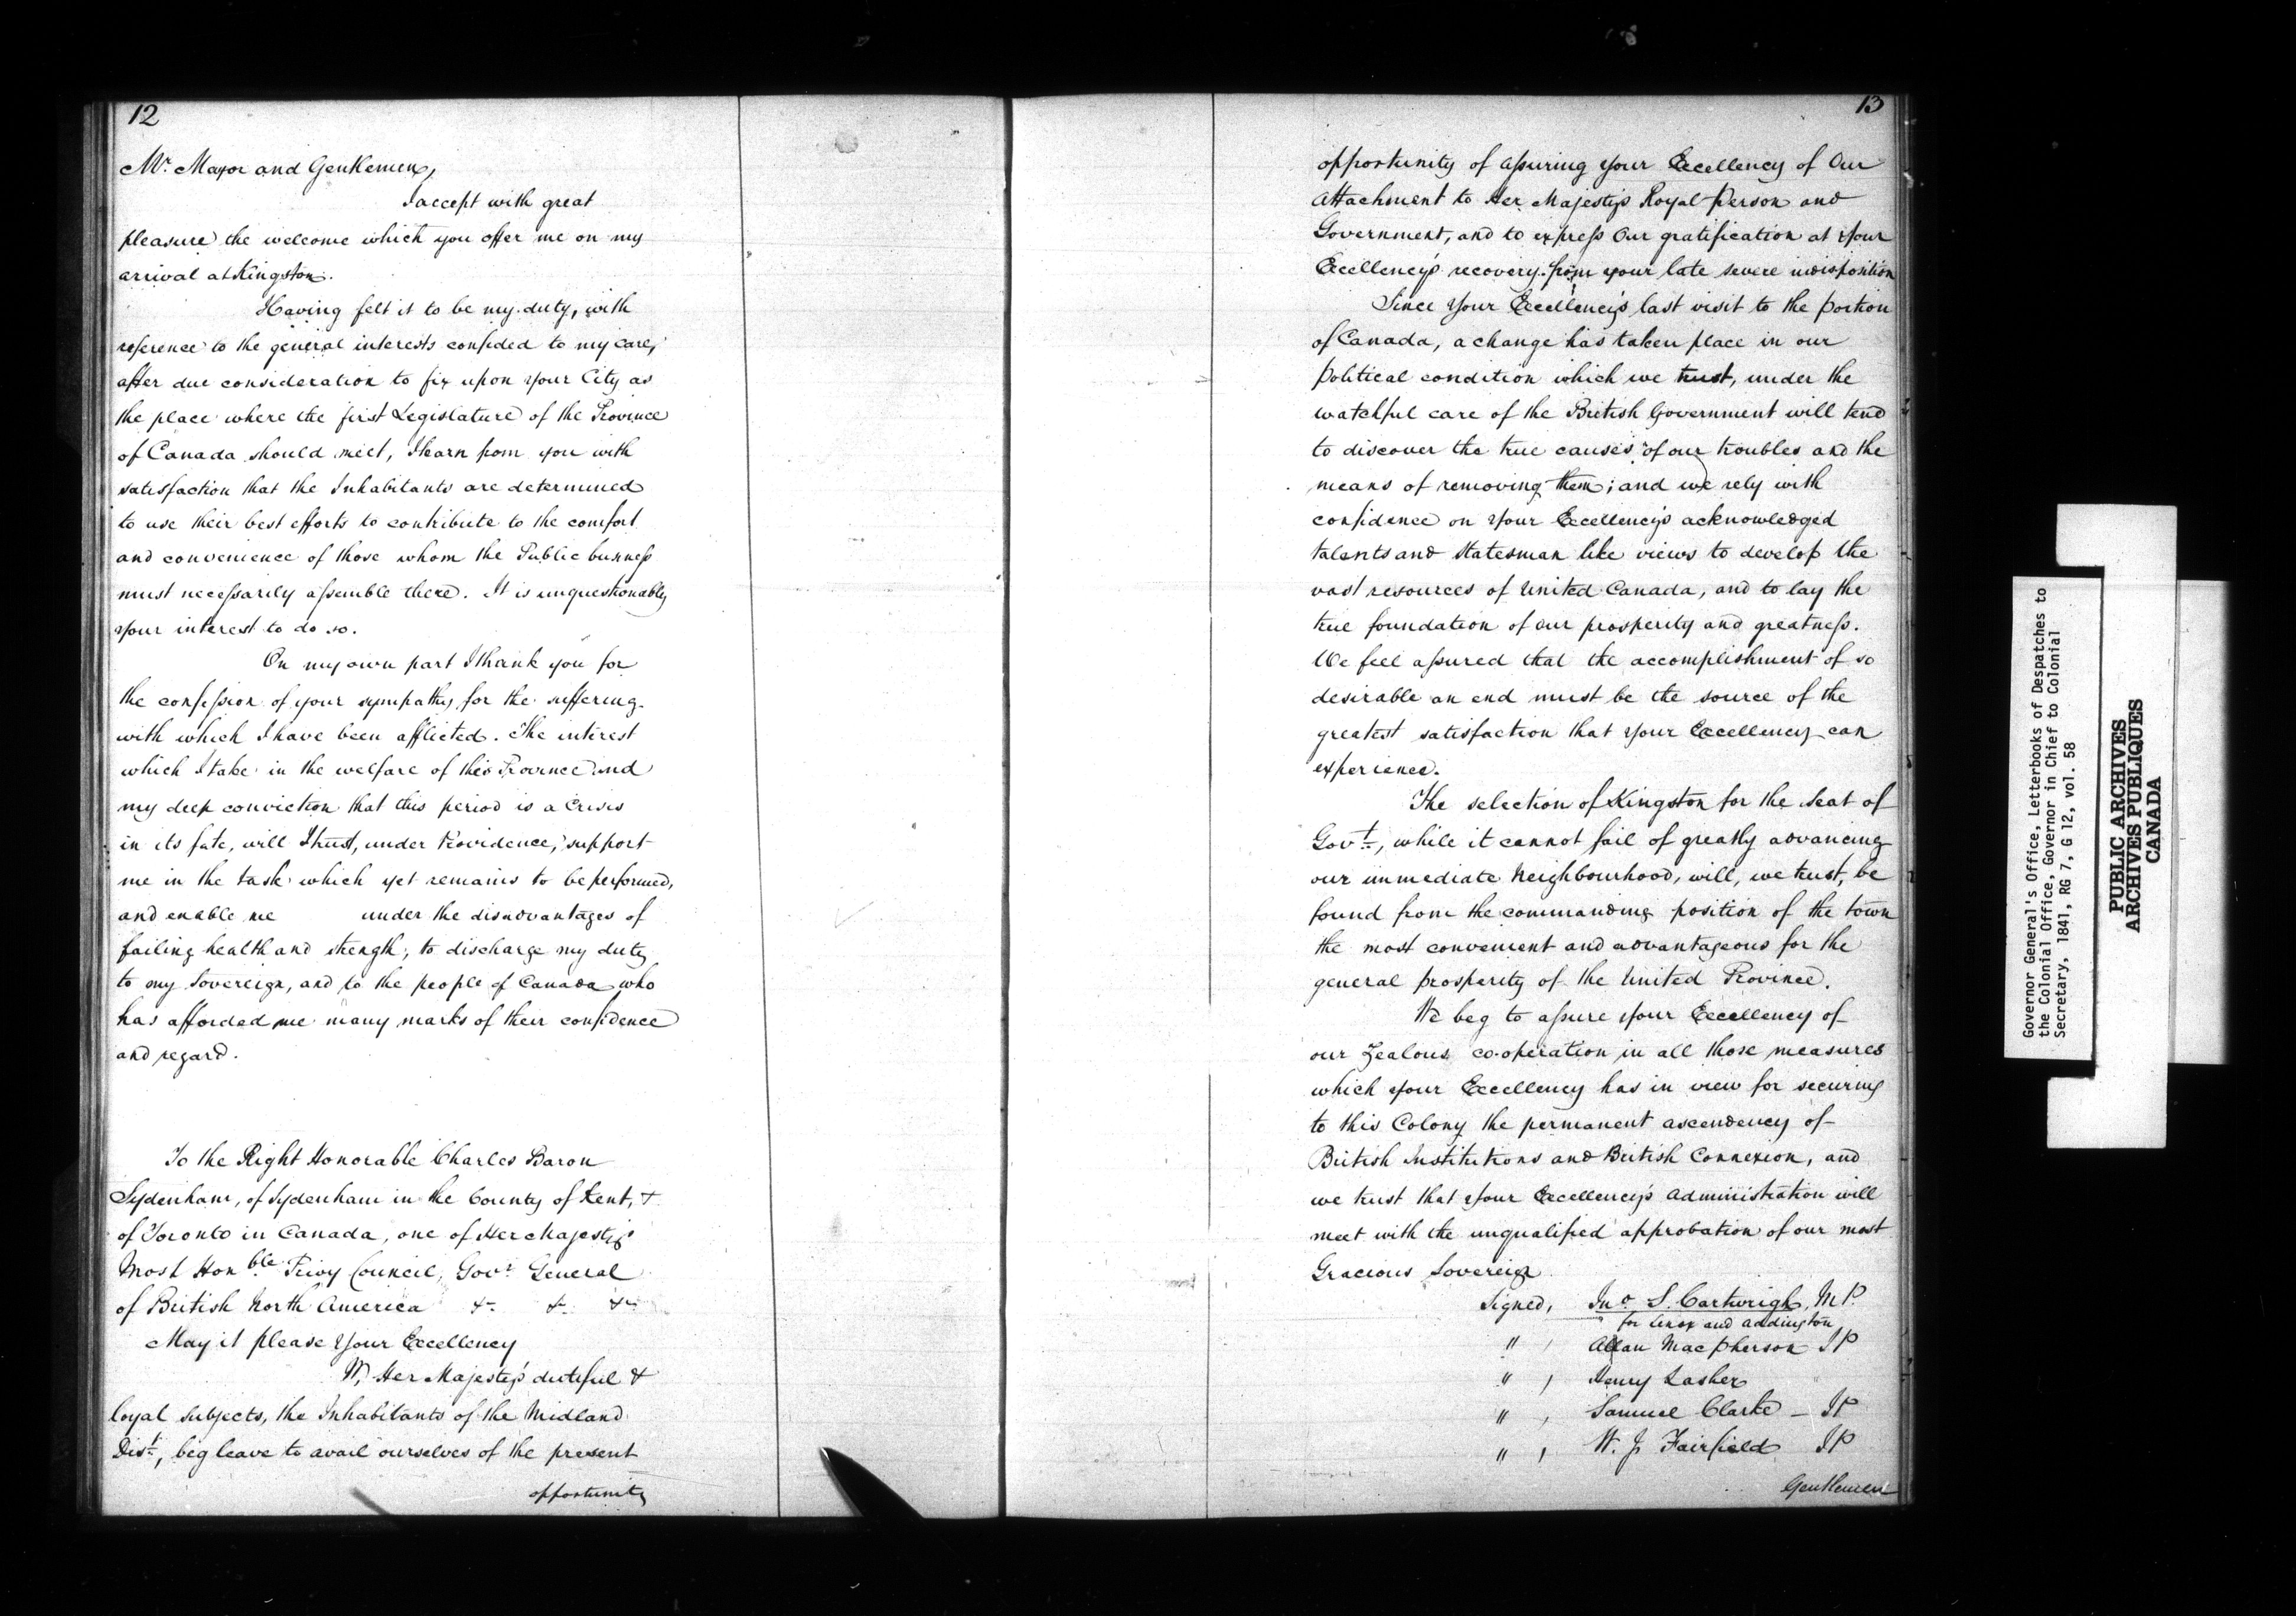 12
Mr. Mayor and Gentlemen,
I accept with great
pleasure the welcome which you offer me on my
arrival at Kingston.
Having felt it to be my duty, with
reference to the general interests confided to my care,
after due consideration to fix upon your City as
the place where the first Legislature of the Province
of Canada should meet, I learn from you with
satisfaction that the Inhabitants are determined
to use their best efforts to contribute to the comfort
and convenience of those whom the Public business
must necessarily assemble there. It is unquestionably
your interest to do so.
On my own part I thank you for
the confession of your sympathy for the suffering
with which I have been afflicted. The interest
which I take in the welfare of this Province and
my deep conviction that this period is a Crisis
in its fate, will I trust, under Providence, support
me in the task which yet remains to be performed,
and enable me under the disadvantages of
failing health and strength, to discharge my duty
to my Sovereign, and to the people of Canada who
has afforded me many marks of their confidence
and regard.
To the Right Honorable Charles Baron
Sydenham, of Sydenham in the County of Kent, &
of Toronto in Canada, one of Her Majesty's
Most Honble Privy Council, Govr General
of British North America &c &c &c
May it please Your Excellency
We, Her Majesty's dutiful &
loyal subjects, the Inhabitants of the Midland
Dist., beg leave to avail ourselves of the present
opportunity
13
opportunity of assuring your Excellency of Our
Attachment to Her Majesty's Royal Person and
Government, and to express Our gratification at Your
Excellency's recovery from your late severe indisposition
Since Your Excellency's last visit to the portion
of Canada, a change has taken place in our
political condition which we trust, under the
watchful care of the British Government will tend
to discover the true causes of our troubles and the
means of removing them; and we rely with
confidence on Your Excellency's acknowledged
talents and statesman like views to develop the
vast resources of United Canada, and to lay the
true foundation of our prosperity and greatness.
We feel assured that the accomplishment of so
desirable an end must be the source of the
greatest satisfaction that Your Excellency can
experience.
The selection of Kingston for the Seat of
Govt., while it cannot fail of greatly advancing
our immediate Neighbourhood, will, we trust, be
found from the commanding position of the town
the most convenient and advantageous for the
general prosperity of the United Province.
We beg to assure Your Excellency of
our Zealous co-operation in all those measures
which Your Excellency has in view for securing
to this Colony the permanent ascendency of
British Institutions and British Connexion, and
we trust that Your Excellency's Administration will
meet with the unqualified approbation of our most
Gracious Sovereign
Signed, Jno S. Cartwright, M.P.
for Lenox and Addington
" , Allan Macpherson JP
" , Henry Lasher
" , Samuel Clarke - JP
" , W. J. Fairfield JP
Gentlemen
Governor General's Office, Letterbooks of Despatches to
the Colonial Office, Governor in Chief to Colonial
Secretary, 1841, RG 7, G 12, vol. 58
PUBLIC ARCHIVES
ARCHIVES PUBLIQUES
CANADA